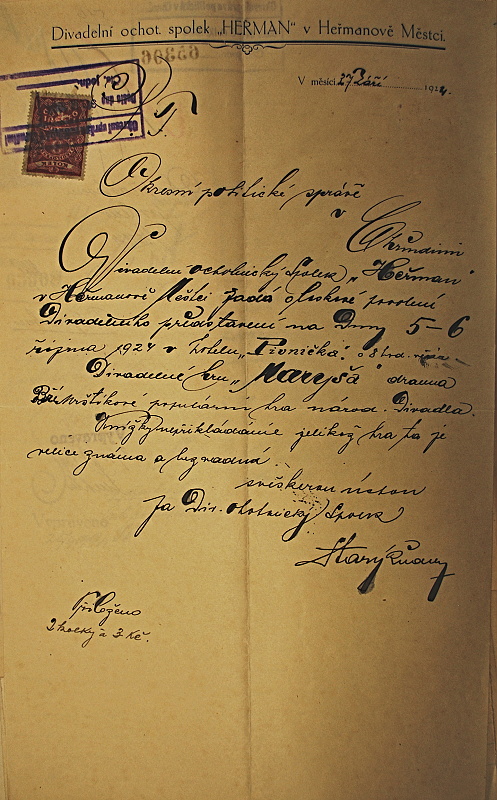 Divadelní ochot. spolek „HEŘMAN" v Heřmanově Městci.
65306
V měsíci 27 Září 1924.
P. T.
Okresní politické správě
v Chrudimi
Divadelní ochotnický Spolek „Heřman"
v Heřmanově Městci žádá o laskavé povolení
Divadelního představení na Dny 5–6
října 1924 v hotelu „Pivnička". o 8 hod.
Divadelné hru „Maryša" drama
Bř. Mrštíkové populární hra národ. Divadla.
Knížky nepřikládáme jelikož hra ta je
velice známa a bezvadná.
sveškerou úctou
Za Div. ochotnický Spolek
Přiloženo
2 kolky á 3 Kč.